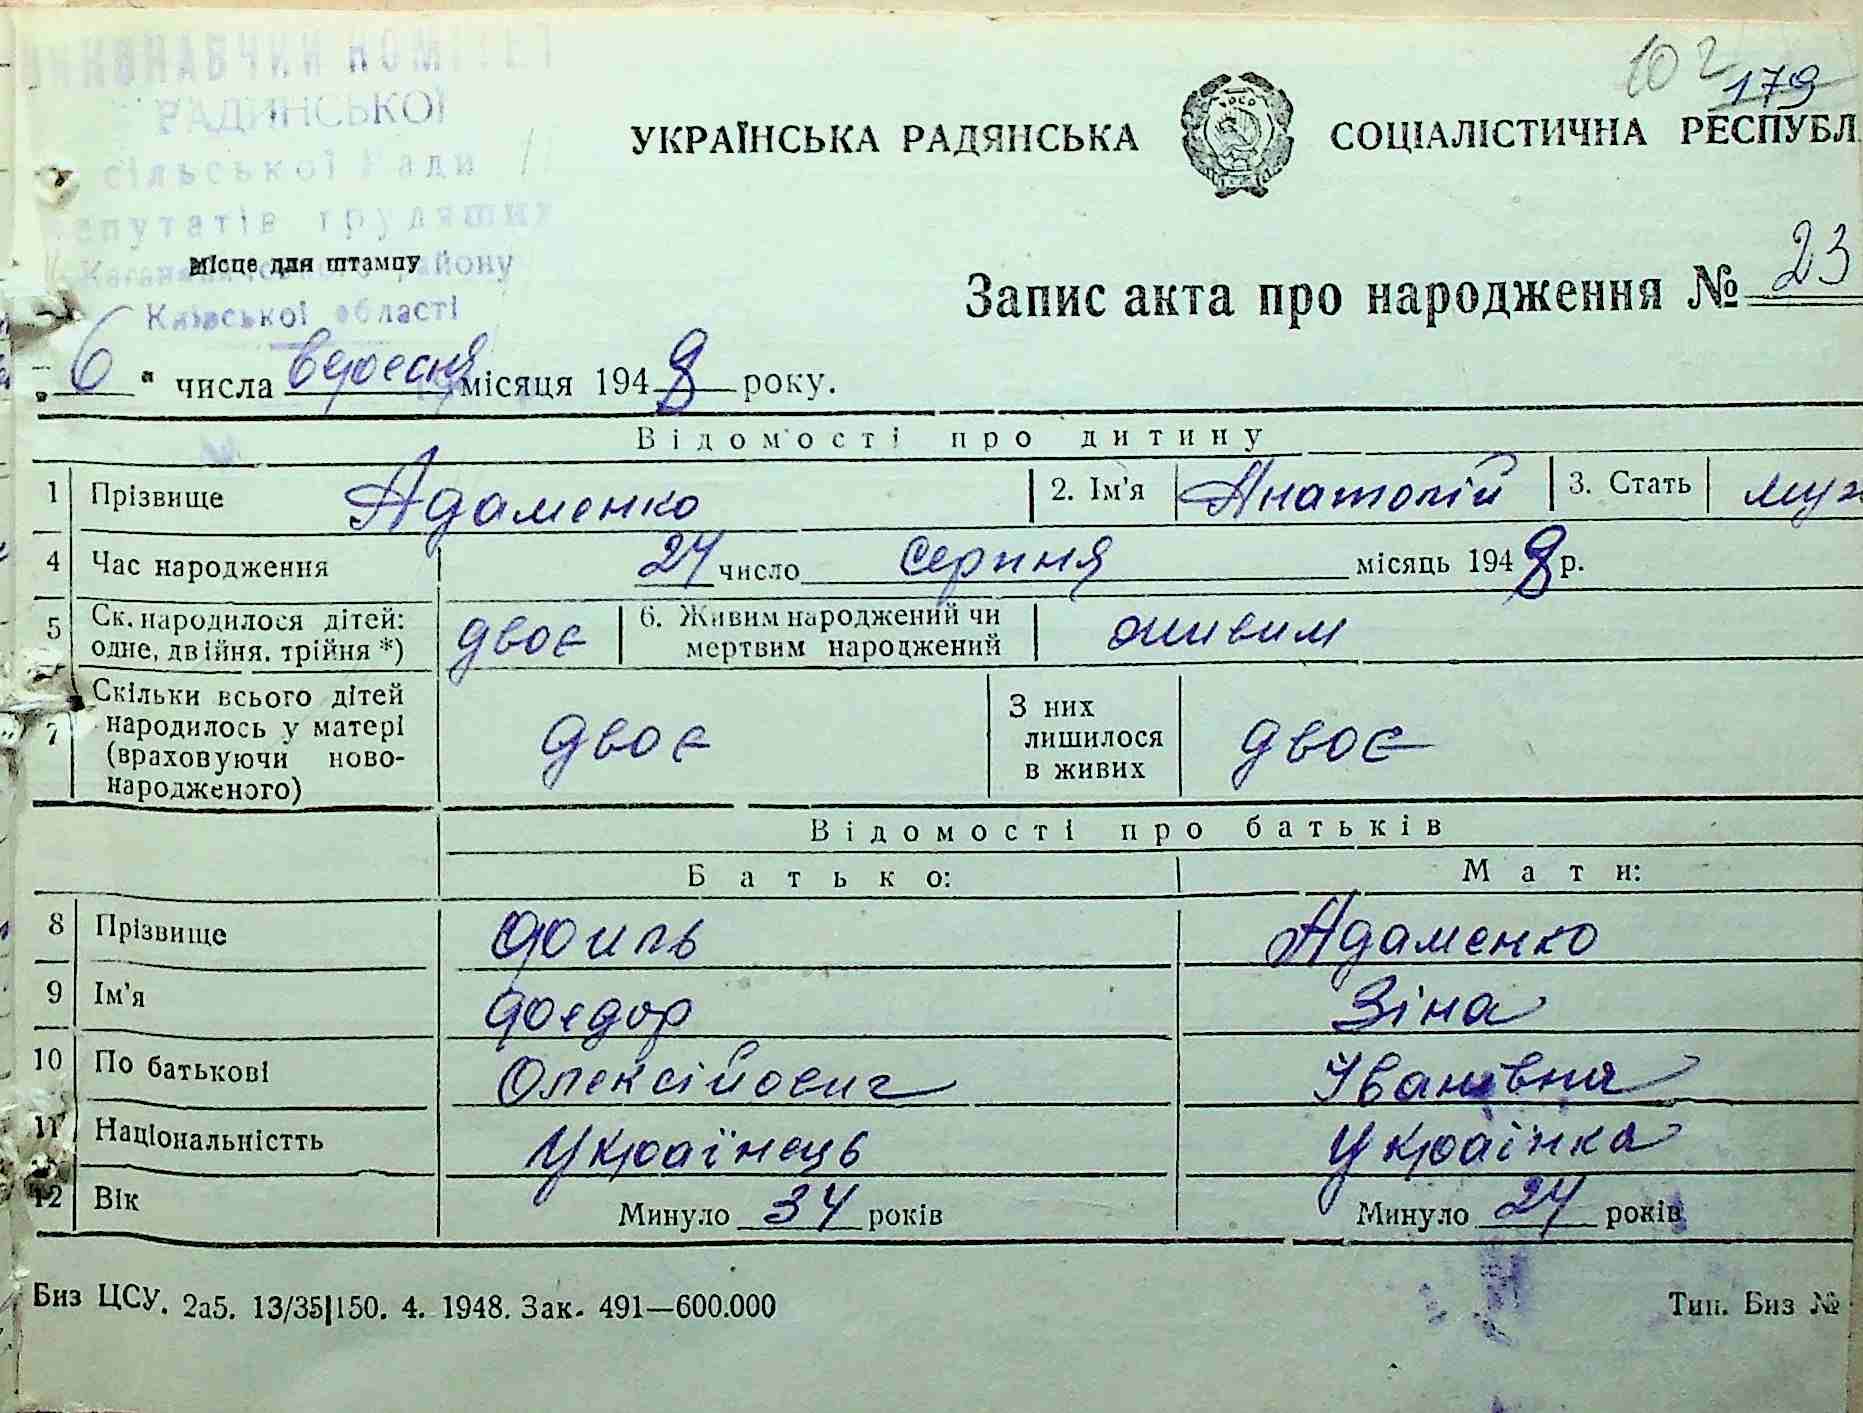 ВИКОНАВЧИЙ КОМІТЕТ
РАДИНСЬКОЇ
сільської Ради
депутатів трудящих
Кагановичського району
Місце для штампу
Київської області
102
179
УКРАЇНСЬКА РАДЯНСЬКА СОЦІАЛІСТИЧНА РЕСПУБЛ
Запис акта про народження № 23
„ 6 " числа вересня місяця 1948 року.
Відомості про дитину
1 Прізвище Адаменко 2. Ім'я Анатолій 3. Стать муж
4 Час народження 24 число серпня місяць 1948 р.
5 Ск. народилося дітей: одне, двійня, трійня *) двоє 6. Живим народжений чи мертвим народжений живим
7 Скільки всього дітей народилось у матері (враховуючи ново-народженого) двоє З них лишилося в живих двоє
Відомості про батьків
Батько: Мати:
8 Прізвище Фоиль Адаменко
9 Ім'я Фоедор Зіна
10 По батькові Олексійович Іванівна
11 Національністть Українець Українка
12 Вік Минуло 34 років Минуло 24 років
Биз ЦСУ. 2а5. 13/35|150. 4. 1948. Зак. 491—600.000 Тип. Биз №